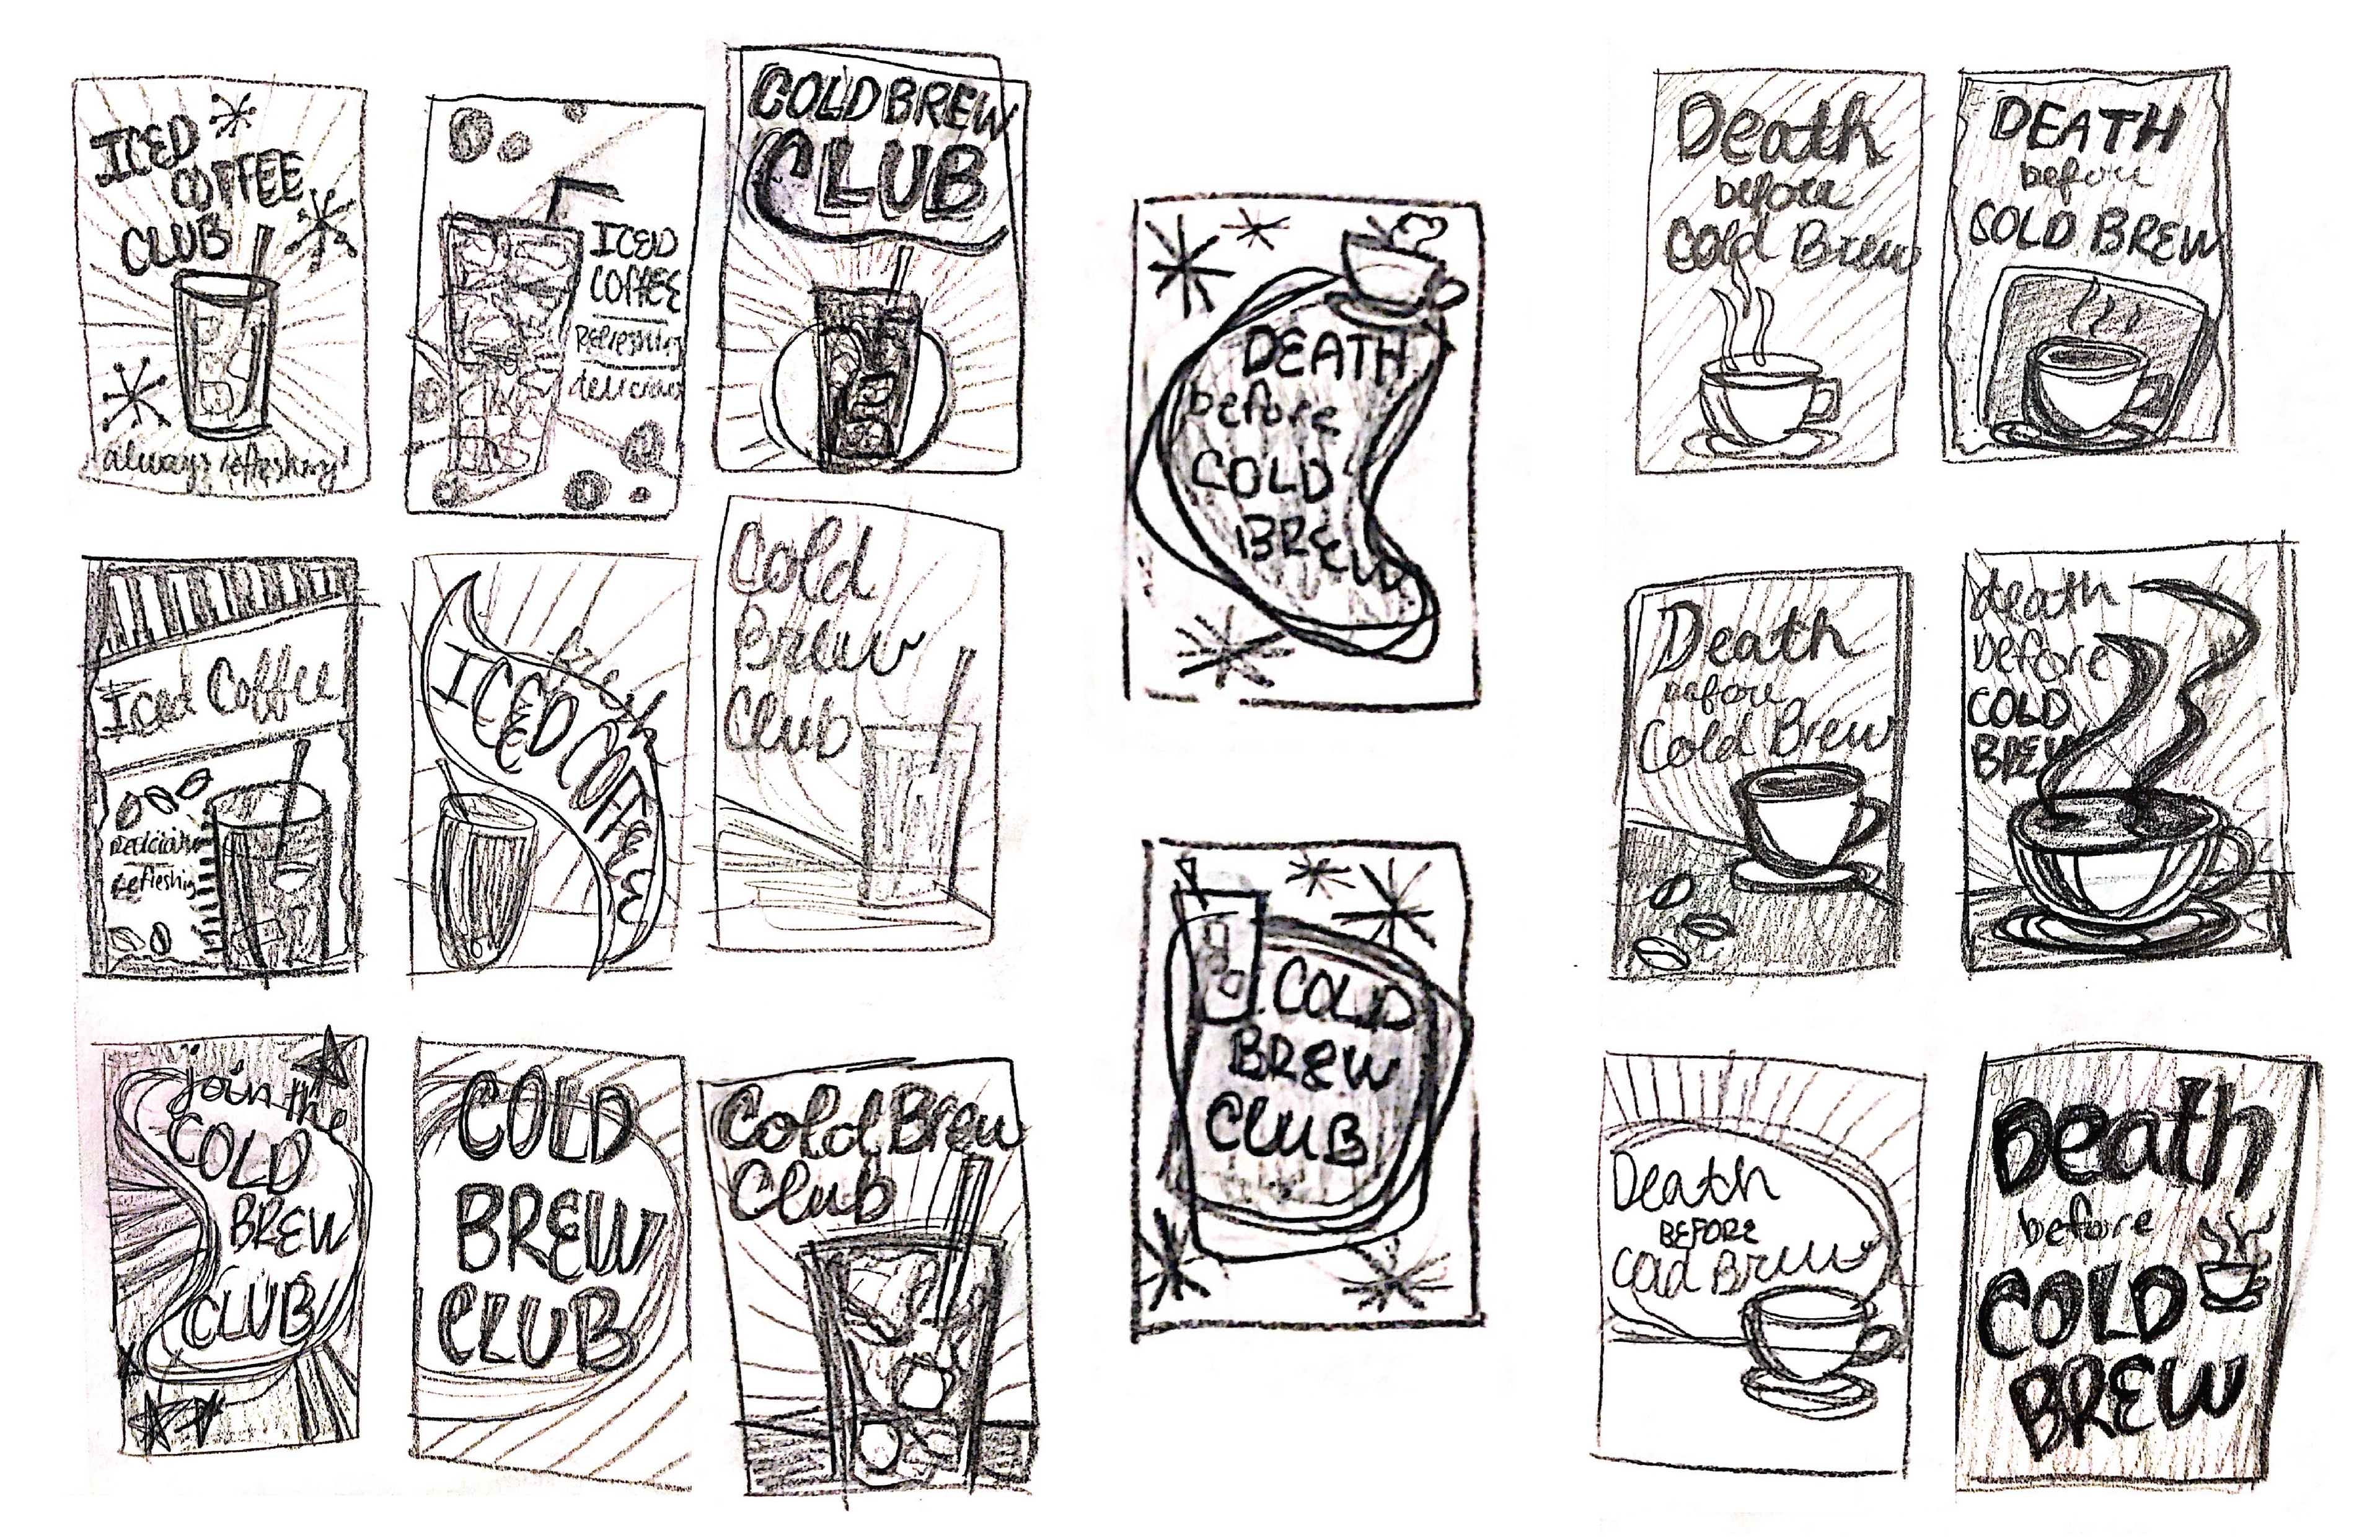 ICED
COFFEE
CLUB
always refreshing!
ICED
COFFEE
Refreshing
delicious
COLD BREW
CLUB
Iced Coffee
Delicious
refreshing
ICED COFFEE
Cold
Brew
Club
join the
COLD
BREW
CLUB
COLD
BREW
CLUB
Cold Brew
Club
DEATH
before
COLD
BREW
COLD
BREW
CLUB
Death
before
Cold Brew
DEATH
before
COLD BREW
Death
before
Cold Brew
death
before
COLD
BREW
Death
BEFORE
Cold Brew
Death
before
COLD
BREW